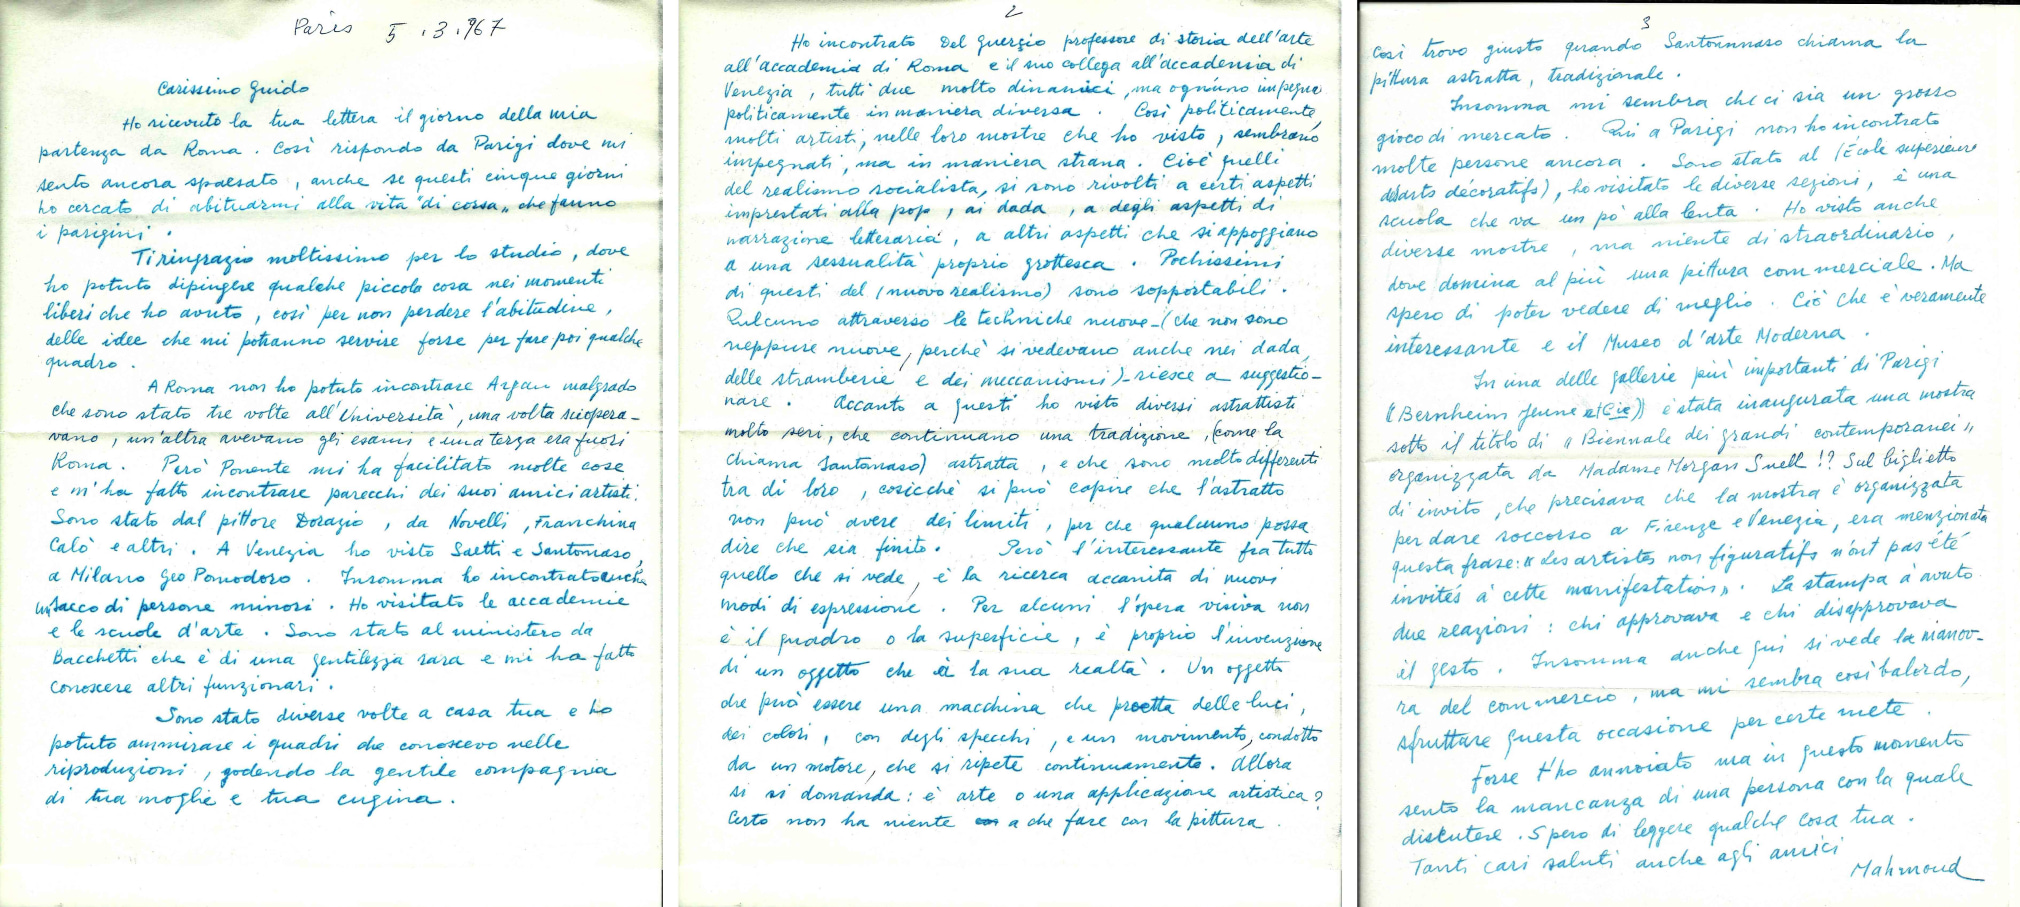 Paris 5.3.967
Carissimo Guido
Ho ricevuto la tua lettera il giorno della mia
partenza da Roma. Così rispondo da Parigi dove mi
sento ancora spaesato, anche se questi cinque giorni
ho cercato di abituarmi alla vita "di corsa„ che fanno
i parigini.
Ti ringrazio moltissimo per lo studio, dove
ho potuto dipingere qualche piccola cosa nei momenti
liberi che ho avuto, così per non perdere l'abitudine,
delle idee che mi potranno servire forse per fare poi qualche
quadro.
A Roma non ho potuto incontrare Argan malgrado
che sono stato tre volte all'Università, una volta sciopera-
vano, un'altra avevano gli esami e una terza era fuori
Roma. Però Ponente mi ha facilitato molte cose
e m'ha fatto incontrare parecchi dei suoi amici artisti.
Sono stato dal pittore Dorazio, da Novelli, Franchina
Calò e altri. A Venezia ho visto Saetti e Santomaso,
a Milano Geo Pomodoro. Insomma ho incontrato anche
un sacco di persone minori. Ho visitato le accademie
e le scuole d'arte. Sono stato al ministero da
Bacchetti che è di una gentilezza rara e mi ha fatto
conoscere altri funzionari.
Sono stato diverse volte a casa tua e ho
potuto ammirare i quadri che conoscevo nelle
riproduzioni, godendo la gentile compagnia
di tua moglie e tua cugina.
2
Ho incontrato Del Guergio professore di storia dell'arte
all'accademia di Roma e il suo collega all'accademia di
Venezia, tutti due molto dinamici, ma ognuno impegna
politicamente in maniera diversa. Così politicamente,
molti artisti, nelle loro mostre che ho visto, sembrano
impegnati, ma in maniera strana. Cioè quelli
del realismo socialista, si sono rivolti a certi aspetti
imprestati alla pop, ai dada, a degli aspetti di
narrazione letteraria, a altri aspetti che si appoggiano
a una sessualità proprio grottesca. Pochissimi
di questi del (nuovo realismo) sono sopportabili.
Qulcuno attraverso le techniche nuove-(che non sono
neppure nuove, perchè si vedevano anche nei dada,
delle stramberie e dei meccanismi)-riesce a suggestio-
nare. Accanto a questi ho visto diversi astrattisti
molto seri, che continuano una tradizione, (come la
chiama Santomaso) astratta, e che sono molto differenti
tra di loro, cosicchè si può capire che l'astratto
non può avere dei limiti, per che qualcuno possa
dire che sia finito. Però l'interessante fra tutto
quello che si vede, è la ricerca accanita di nuovi
modi di espressione. Per alcuni l'opera visiva non
è il quadro o la superficie, è proprio l'invenzione
di un oggetto che è la sua realtà. Un oggetto
che può essere una macchina che proetta delle luci,
dei colori, con degli specchi, e un movimento, condotto
da un motore, che si ripete continuamente. Allora
si si domanda: è arte o una applicazione artistica?
Certo non ha niente a che fare con la pittura.
3
Così trovo giusto quando Santommaso chiama la
pittura astratta, tradizionale.
Insomma mi sembra che ci sia un grosso
gioco di mercato. Qui a Parigi non ho incontrato
molte persone ancora. Sono stato al (École supérieure
des arts décoratifs), ho visitato le diverse sezioni, è una
scuola che va un pò alla lenta. Ho visto anche
diverse mostre, ma niente di straordinario,
dove domina al più una pittura commerciale. Ma
spero di poter vedere di meglio. Ciò che è veramente
interessante e il Museo d'arte Moderna.
In una delle gallerie più importanti di Parigi
((Bernheim Jeune et Cie)) è stata inaugurata una mostra
sotto il titolo di «Biennale dei grandi contemporanei»
organizzata da Madame Morgan Snell!? Sul biglietto
di invito, che precisava che la mostra è organizzata
per dare soccorso a Firenze e Venezia, era menzionata
questa frase: «Les artistes non figuratifs n'ont pas été
invités à cette manifestation». La stampa à avuto
due reazioni: chi approvava e chi disapprovava
il gesto. Insomma anche qui si vede la manov-
ra del commercio, ma mi sembra così balordo,
sfruttare questa occasione per certe mete.
Forse t'ho annoiato ma in questo momento
sento la mancanza di una persona con la quale
discutere. Spero di leggere qualche cosa tua.
Tanti cari saluti anche agli amici
Mahmoud